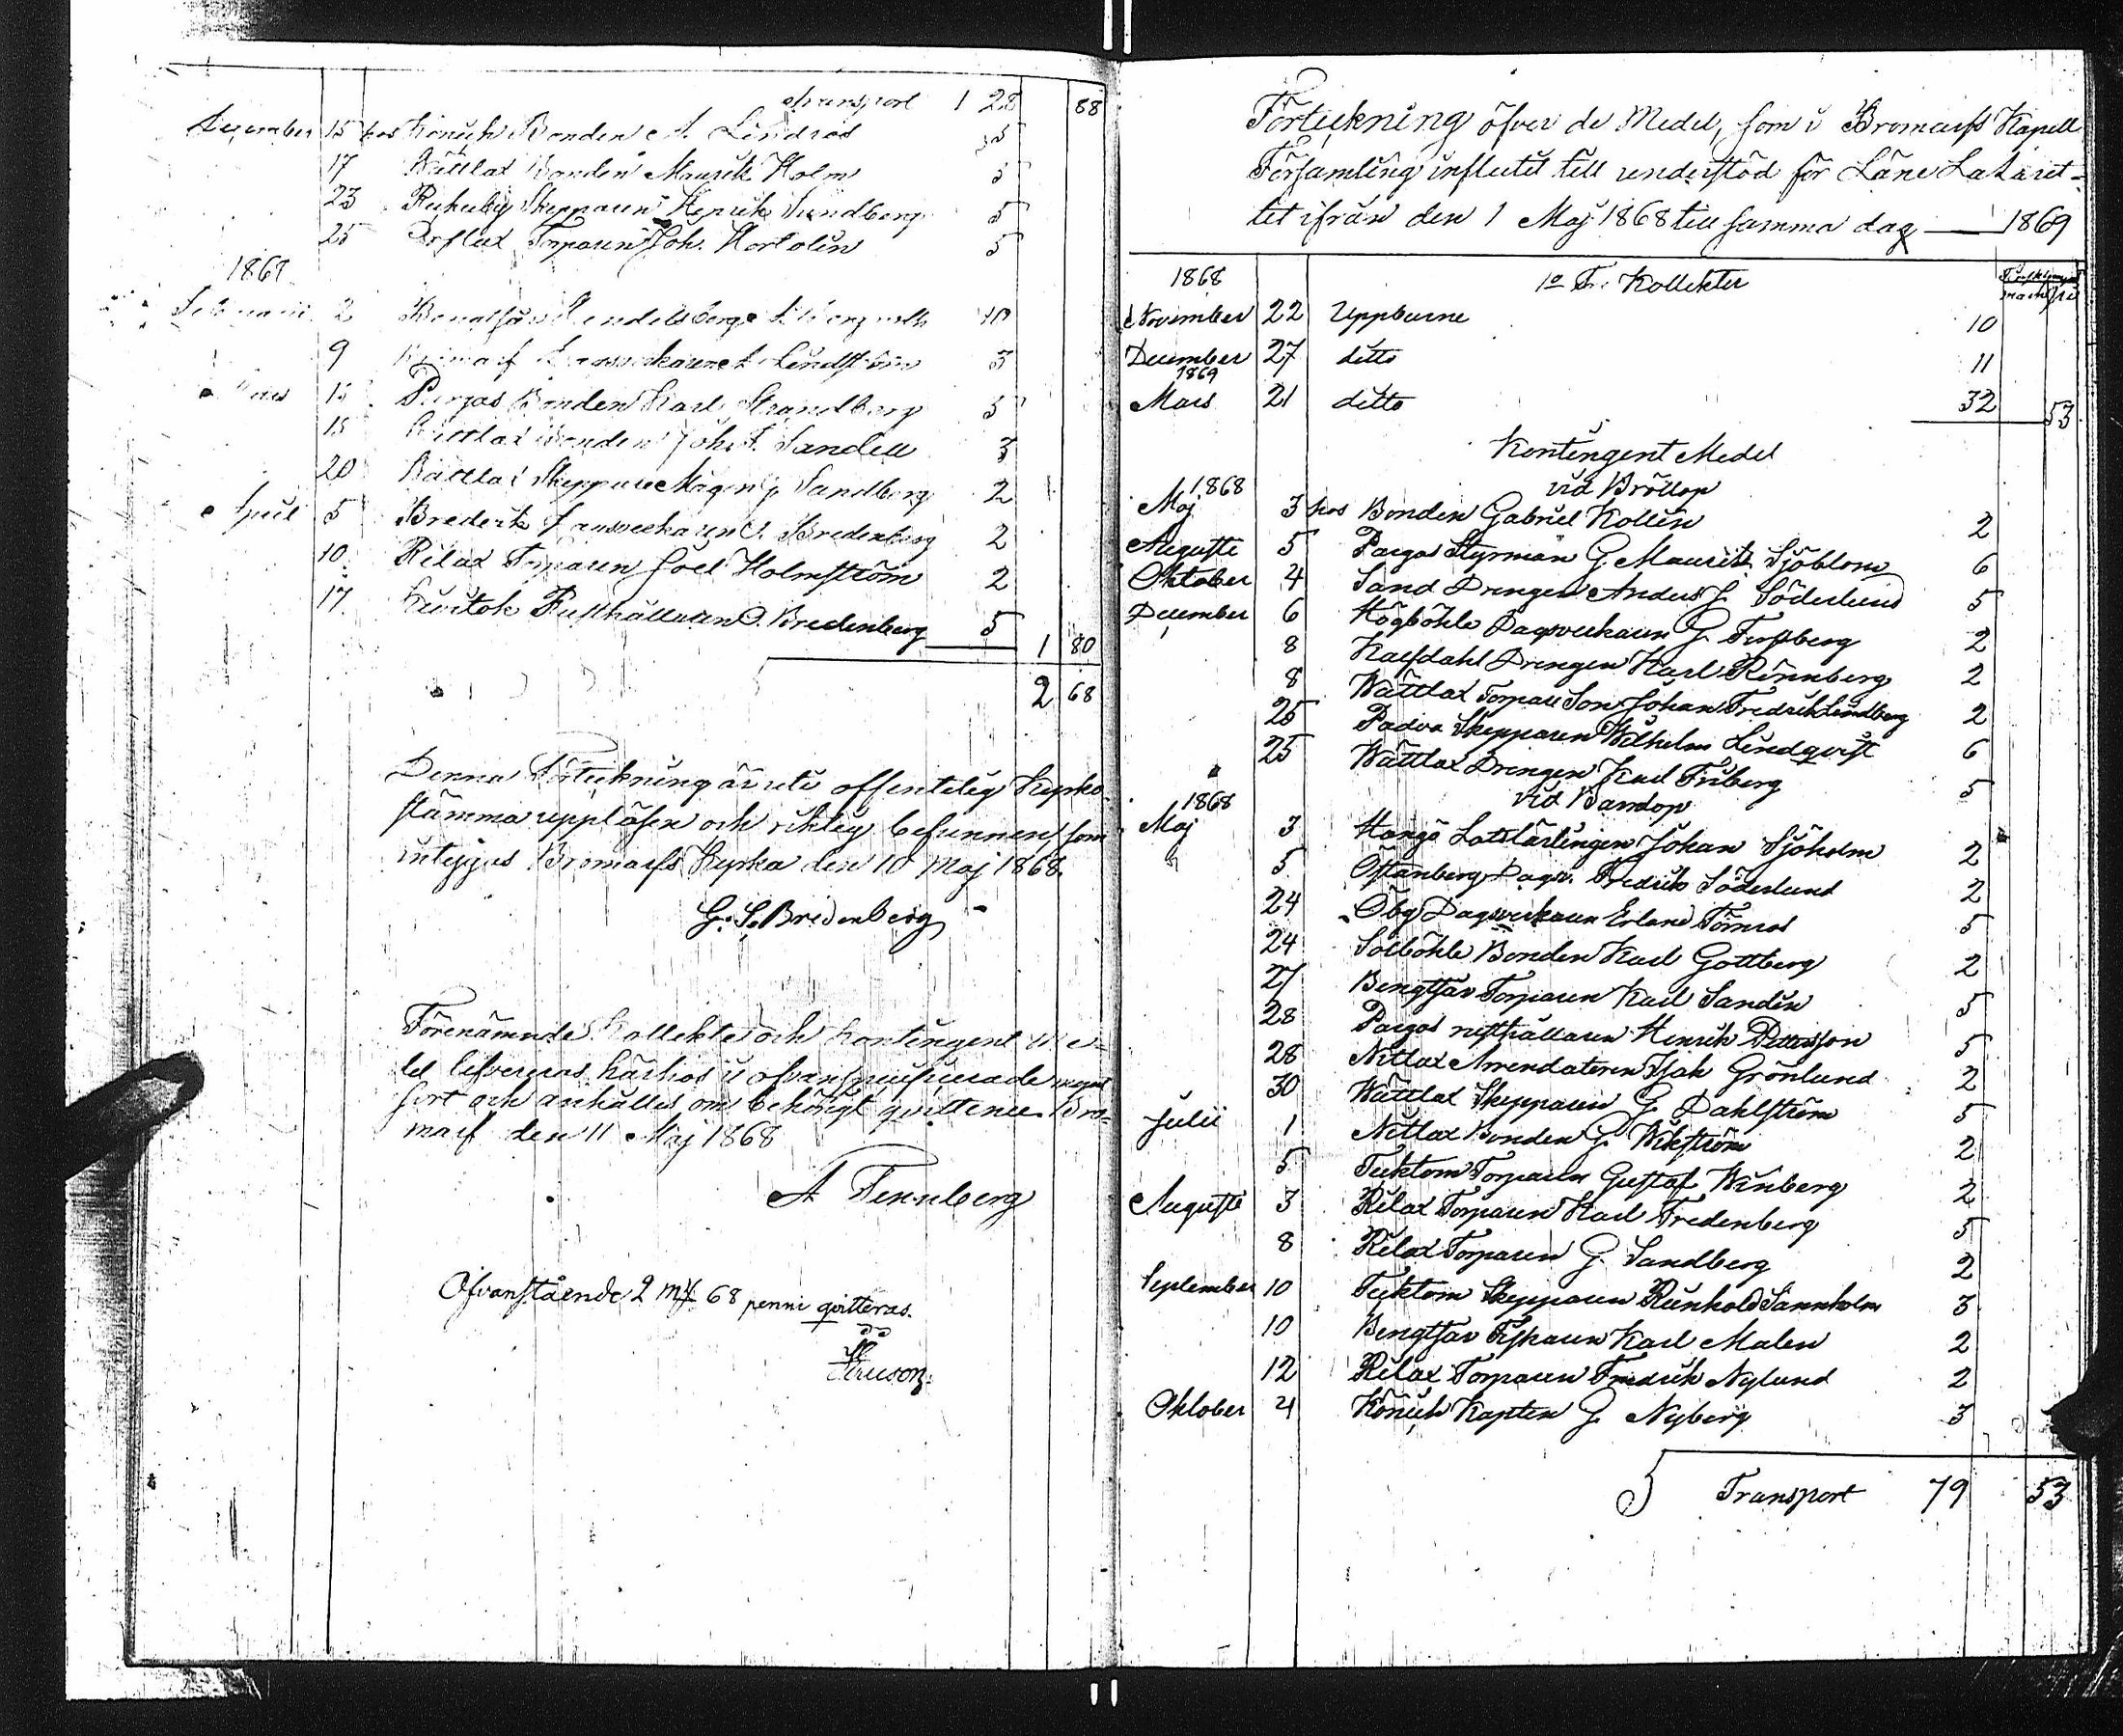 Transport 1 28 88
December 15 hos Bonden A. Lindros 5
17 Wättlax Bonden Maurits Holm 5
23 Skepparen Henrik Sundberg 5
25 Torparen Joh. Hortolin 5
1868
Februarii 2 10
9 Lindström 3
Mars 15 Pargas Bonden Karl Strandberg 5
15 Wättlax Bonden Joh. F. Sandell 3
20 Wättlax Skeppare Magn. J. Sandberg 2
April 5 Brederik Bredenberg 2
10 Rilax Torparen Joel Holmström 2
17 Rusthållaren Bredenberg 5
1 80
2 68
Denna Förteckning är uti offentelig Kyrko-
stämma uppläsen och riktig befunnen, som
intygas Bromarfs Kyrka den 10 Maj 1868.
G. S. Bredenberg
Förenämnde Kollekte och Kontingent Me-
del lefvereras härhos i ofvanspecificerade mynt
sort och anhålles om behörigt qvittence. Bro-
marf den 11 Maj 1868
A Tennberg
Ofvanstående 2 mk 68 penni qvitteras.
Förteckning öfver de Medel, som i Bromarfs Kapell
Församling influtit till understöd för Läne Lazaret-
tet ifrån den 1 Maj 1868 till samma dag — 1869
1868 1o Kollekter
November 22 Uppburne 10
December 27 ditto 11
1869
Mars 21 ditto 32 53
Kontingent Medel
1868 vid Bröllop
Maj 3 hos Bonden Gabriel Kollin 2
Augusti 5 Pargas Styrman G. Maurits Sjöblom 6
Oktober 4 Sand Drengen Anders J. Söderlund 5
December 6 Högböhle Dagsverkaren G. Forsberg 2
8 Kalfdahl Drengen Karl Rönnberg 2
8 Wättlax Torpare Son Johan Fredrik Lindberg 2
25 Padva Skepparen Wilhelm Lindqvist 6
25 Wättlax Drengen Karl Friberg 5
1868 vid Barndop
Maj 3 Hangö Lotslärlingen Johan Sjöholm 2
5 Östanberg Dagsv. Fredrik Söderlund 2
24 Öby Dagsverkaren Erland Törnros 5
24 Solböhle Bonden Karl Gottberg 2
27 Bengtsar Torparen Karl Sandin 5
28 Pargas rusthållaren Henrik Pettersson 5
28 Nitlax Arrendatoren Isak Grönlund 2
30 Wättlax Skepparen G. Dahlström 5
Julii 1 Nitlax Bonden G. Wikström 2
5 Tecktom Torparen Gustaf Winberg 2
Augusti 3 Rilax Torparen Karl Fredenberg 5
8 Rilax Torparen G. Sandberg 2
September 10 Tecktom Skepparen Reinhold Sannholm 3
10 Bengtsar Karl Malen 2
12 Rilax Torparen Fredrik Nylund 2
Oktober 4 Kapten G. Nyberg 3
Transport 79 53